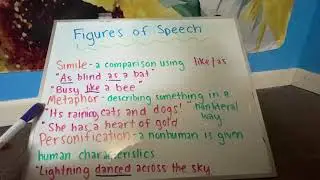 Figures of Speech
Simile - a comparison using like/as
"As blind as a bat"
"Busy like a bee"
Metaphor - describing something in a nonliteral way
"It's raining cats and dogs"
"She has a heart of gold
Personification - a nonhuman is given
human characteristics
"Lightning danced across the sky